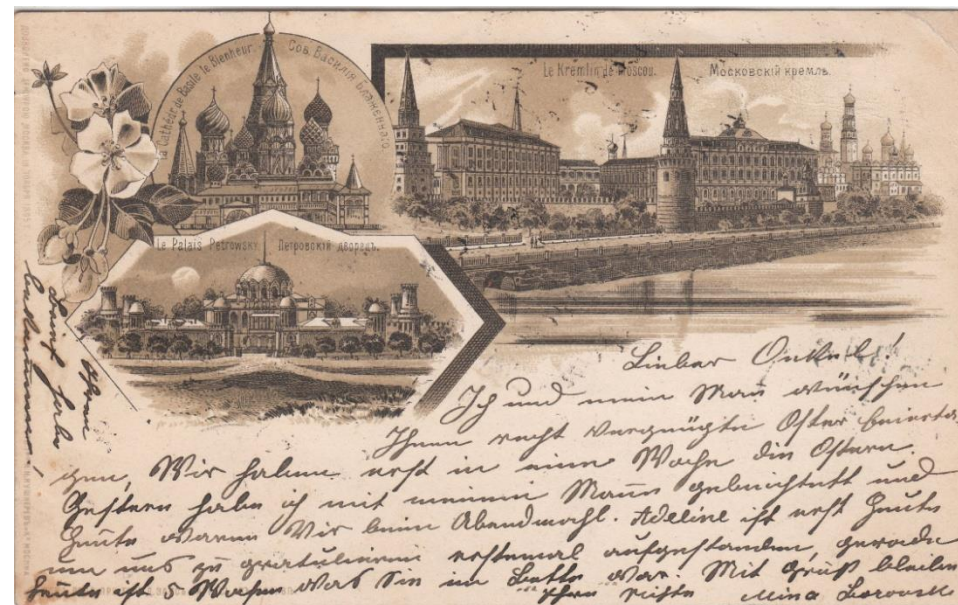 La Cathédr de Basile le Bienheur. Соб. Василія Блаженнаго.
Le Kremlin de Moscou. Московскій кремль.
Le Palais Petrowsky. Петровскій дворецъ.
Lieber Onkel!
Ich und mein Mann wünschen
Ihnen recht vergnügte Oster feierta
gen, Wir haben erst in eine Woche die Ostern.
Gestern habe ich mit meinem Mann gebeichtett und
Heute waren Wir beim Abendmahl. Adeline ist erst Heute
um uns zu gratulieren erstemal aufgestanden, gerade
heute ist 5 Wochen was Sie im Bette war. Mit Gruß bleiben
Ihre Nichte Mina